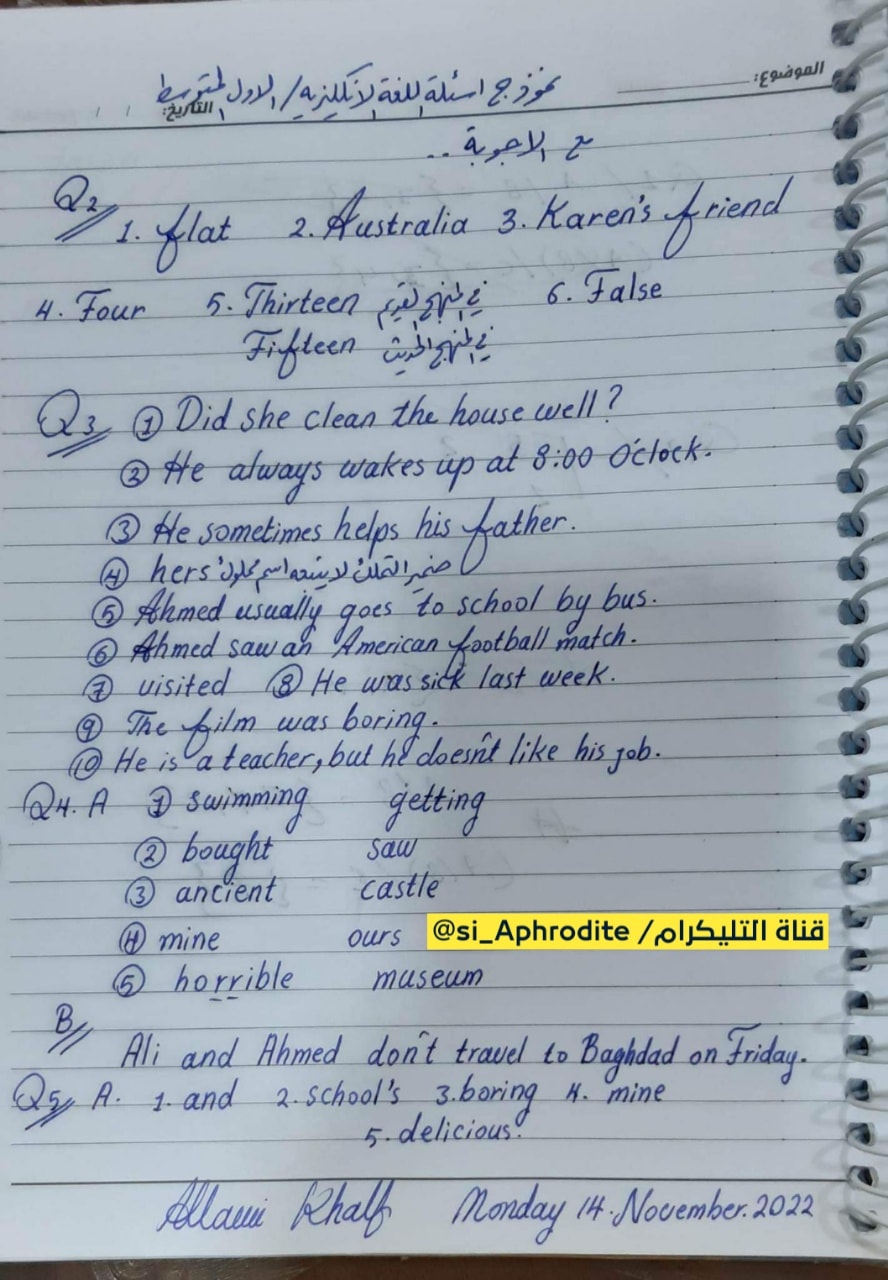 الموضوع:
نموذج اسئلة اللغة الانكليزية / الاول المتوسط
التاريخ: / /
مع الاجوبة ..
Q2 1. flat 2. Australia 3. Karen's friend
4. Four 5. Thirteen في المنهج القديم 6. False
Fifteen في المنهج الحديث
Q3 ① Did she clean the house well?
② He always wakes up at 8:00 O'clock.
③ He sometimes helps his father.
④ hers ضمير التملك لا يتبعه اسم
⑤ Ahmed usually goes to school by bus.
⑥ Ahmed saw an American football match.
⑦ visited ⑧ He was sick last week.
⑨ The film was boring.
⑩ He is a teacher, but he doesn't like his job.
Q4. A ① swimming getting
② bought saw
③ ancient castle
④ mine ours
قناة التليكرام/ @si_Aphrodite
⑤ horrible museum
B
Ali and Ahmed don't travel to Baghdad on Friday.
Q5 A. 1. and 2. school's 3. boring 4. mine
5. delicious.
Allawi Khalf Monday 14. November. 2022